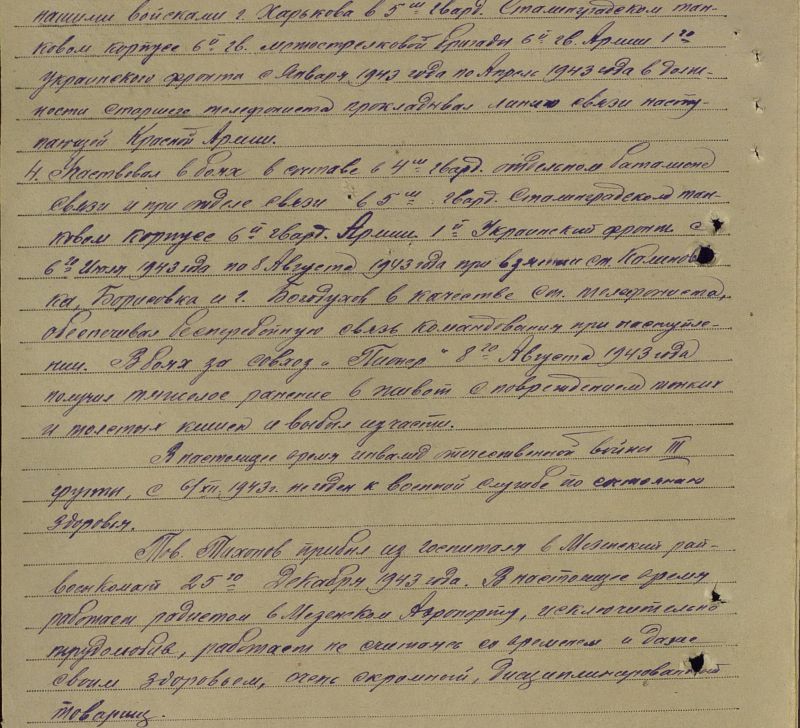 нашими войсками г. Харькова в 5ом гвард. Сталинградском тан-
ковом корпусе 6й гв. мотострелковой бригады 6й гв. Армии 1го
Украинского фронта с Января 1943 года по Апрель 1943 года в долж-
ности старшего телефониста прокладывал линию связи насту-
пающей Красной Армии.
4. Участвовал в боях в составе в 4ом гвард. отдельном баталионе
связи и при отделе связи в 5ом гвард. Сталинградском тан-
ковом корпусе 6й гвард. Армии 1й Украинский фронт с
6го Июля 1943 года по 8 Августа 1943 года при взятии ст. Калинов
ка, Борисовка и г. Богодухов в качестве ст. телефониста,
обеспечивал бесперебойную связь командования при наступле-
нии. В боях за совхоз „Пионер" 8го Августа 1943 года
получил тяжелое ранение в живот с повреждением тонких
и толстых кишек и выбыл из части.
В настоящее время инвалид отечественной войны III
группы, с 6/XII. 1943 г. не годен к военной службе по состоянию
здоровья.
Тов. Тихонов прибыл из госпиталя в Мезенский рай-
военкомат 25го Декабря 1943 года. В настоящее время
работает радистом в Мезенском Аэропорту, исключительно
трудолюбив, работает не считаясь со временем и даже
своим здоровьем, очень скромный, дисциплинированный
товарищ.